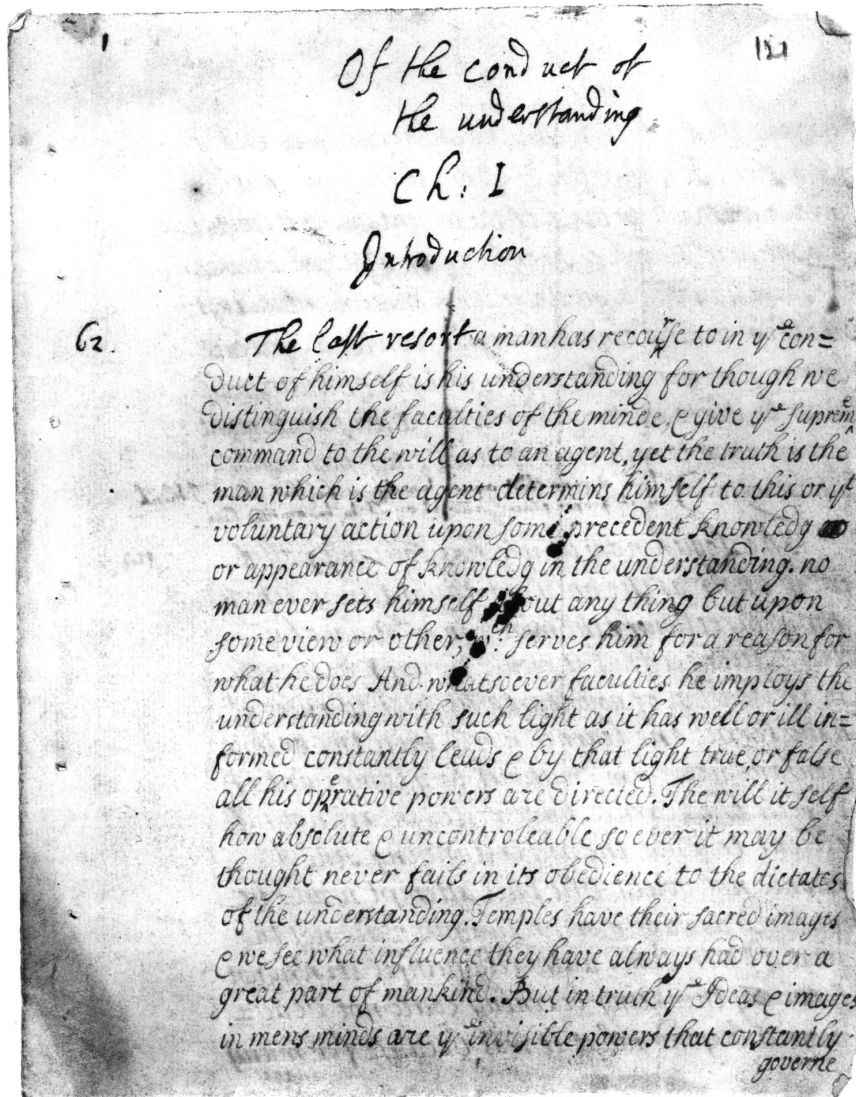 1
121
Of the conduct of
the understanding
Ch: I
Introduction
62. The last resort a man has recourse to in yᵉ con=
duct of himself is his understanding for though we
distinguish the faculties of the minde, & give yᵉ supreme
command to the will as to an agent, yet the truth is the
man which is the agent determins himself to this or yᵗ
voluntary action upon some precedent knowledg
or appearance of knowledg in the understanding. no
man ever sets himself about any thing but upon
some view or other, wᶜʰ serves him for a reason for
what he does And whatsoever faculties he imploys the
understanding with such light as it has well or ill in=
formed constantly leads & by that light true, or false
all his operative powers are directed. The will it self
how absolute & uncontroleable so ever it may be
thought never fails in its obedience to the dictates
of the understanding. Temples have their sacred images
& we see what influence they have always had over a
great part of mankind. But in truth yᵉ Ideas & images
in mens minds are yᵉ invisible powers that constantly
governe